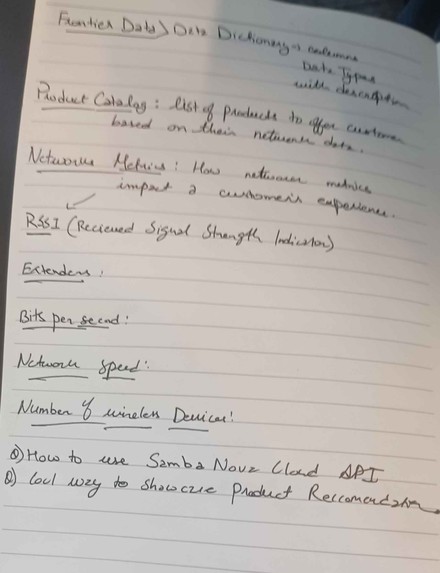 Frontier Data > Data Dictionary → columns
Data Types
with description
Product Catalog : list of products to offer customer
based on their network data.
Network Metrics : How network metrics
impact a customer's experience.
RSSI (Recieved Signal Strength Indicator)
Extenders :
Bits per second :
Network Speed :
Number of wireless Devices :
Q) How to use Samba Nova Cloud API
Q) Cool way to showcase Product Reccomendation